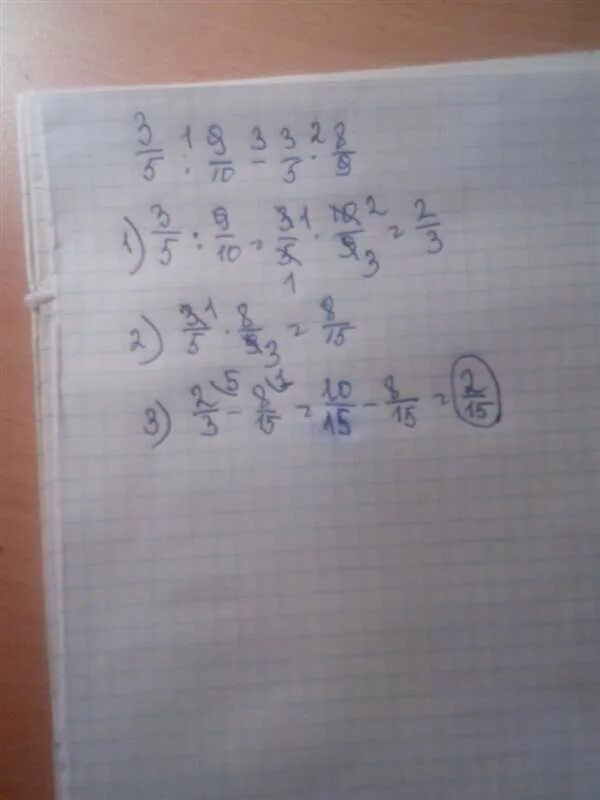 3/5 :¹ 9/10 -³ 3/5 ·² 8/9
1) 3/5 : 9/10 = 3¹/5₁ · 10²/9₃ = 2/3
2) 3¹/5 · 8/9₃ = 8/15
3) 2\5/3 - 8\1/15 = 10/15 - 8/15 = 2/15